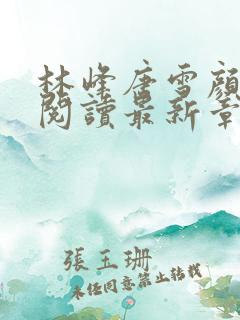 林峰唐雪顏
閱讀最新章
張玉珊
未經同意禁止轉載